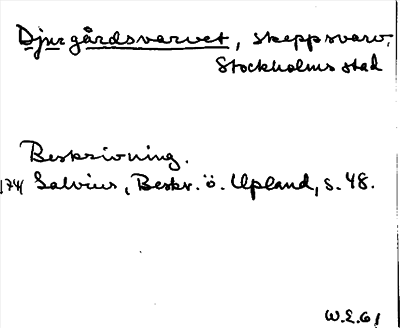 Djurgårdsvarvet, skeppsvarv,
Stockholms stad
Beskrivning.
1741 Salvius, Beskr. ö. Upland, s. 48.
W.E.61